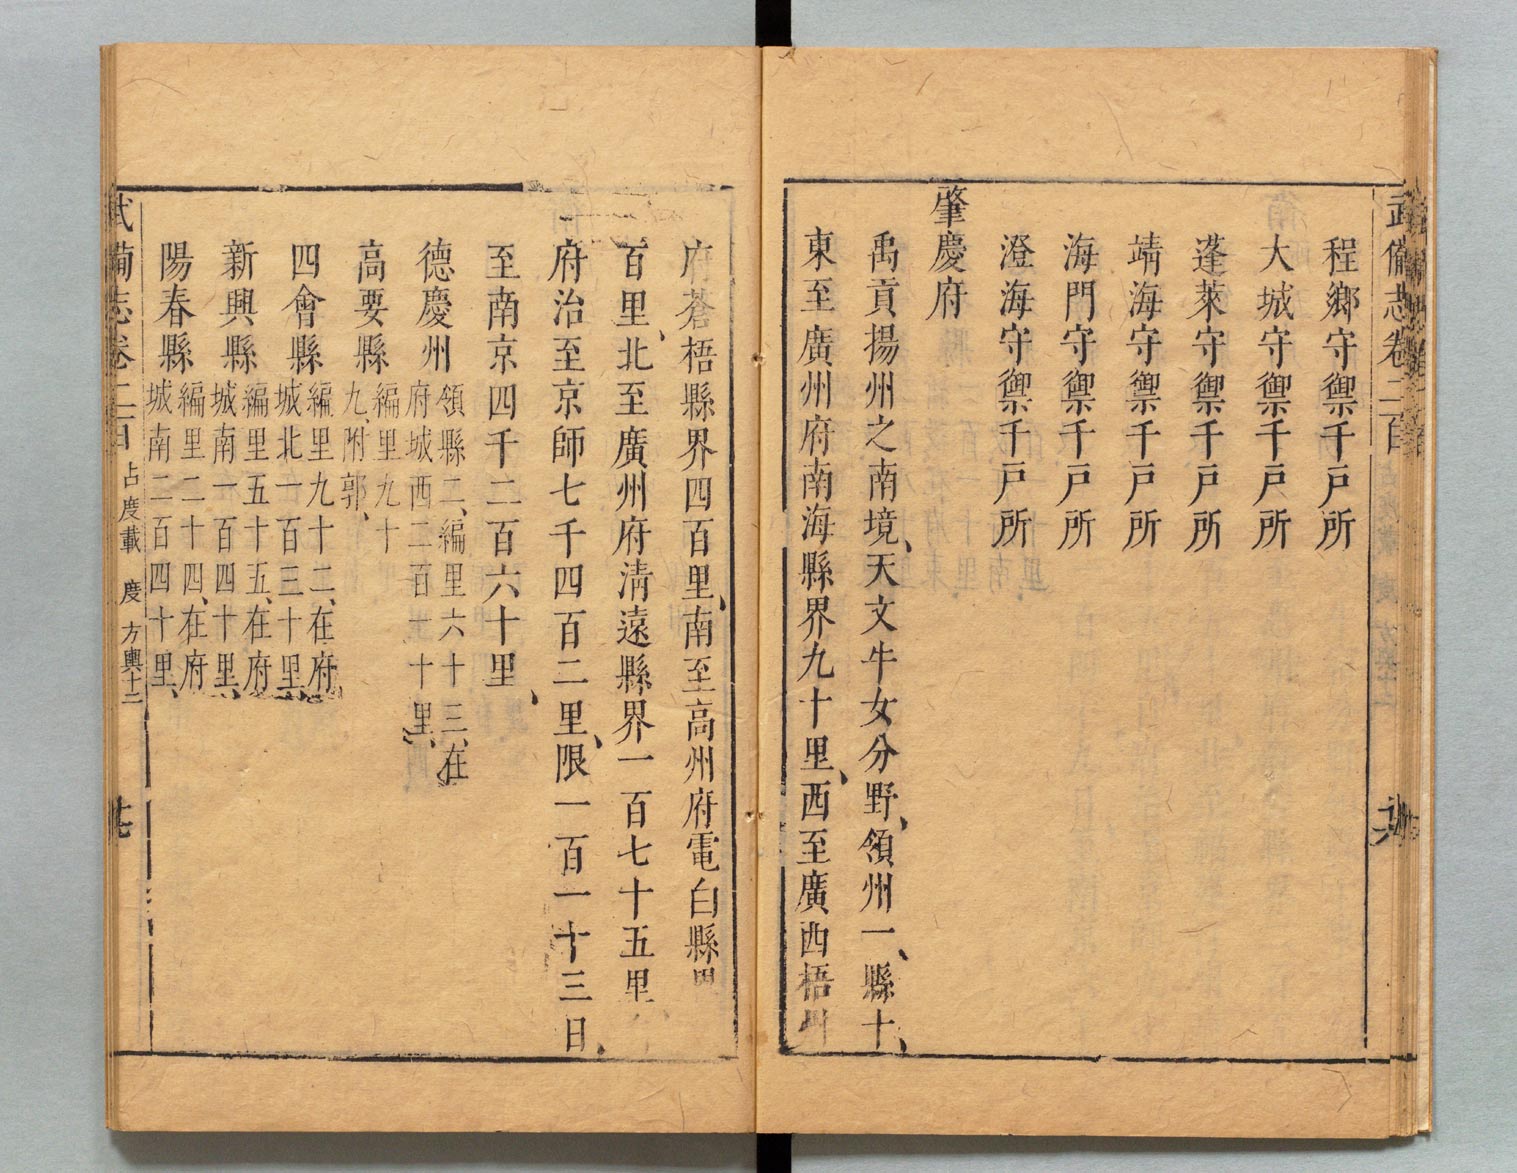 武備志卷二百
程鄉守禦千戶所
大城守禦千戶所
蓬萊守禦千戶所
靖海守禦千戶所
海門守禦千戶所
澄海守禦千戶所
肇慶府
禹貢揚州之南境、天文牛女分野、領州一、縣十、
東至廣州府南海縣界九十里、西至廣西梧州
府蒼梧縣界四百里、南至高州府電白縣界
百里、北至廣州府清遠縣界一百七十五里
府治至京師七千四百二里、限一百一十三日、
至南京四千二百六十里、
德慶州
領縣二、編里六十三、在
府城西二百一十里、
高要縣
編里九十
九、附郭、
四會縣
編里九十二、在府
城北一百三十里、
新興縣
編里五十五、在府
城南一百四十里、
陽春縣
編里二十四、在府
城南二百四十里、
武備志卷二百 占度載 度 方輿十二